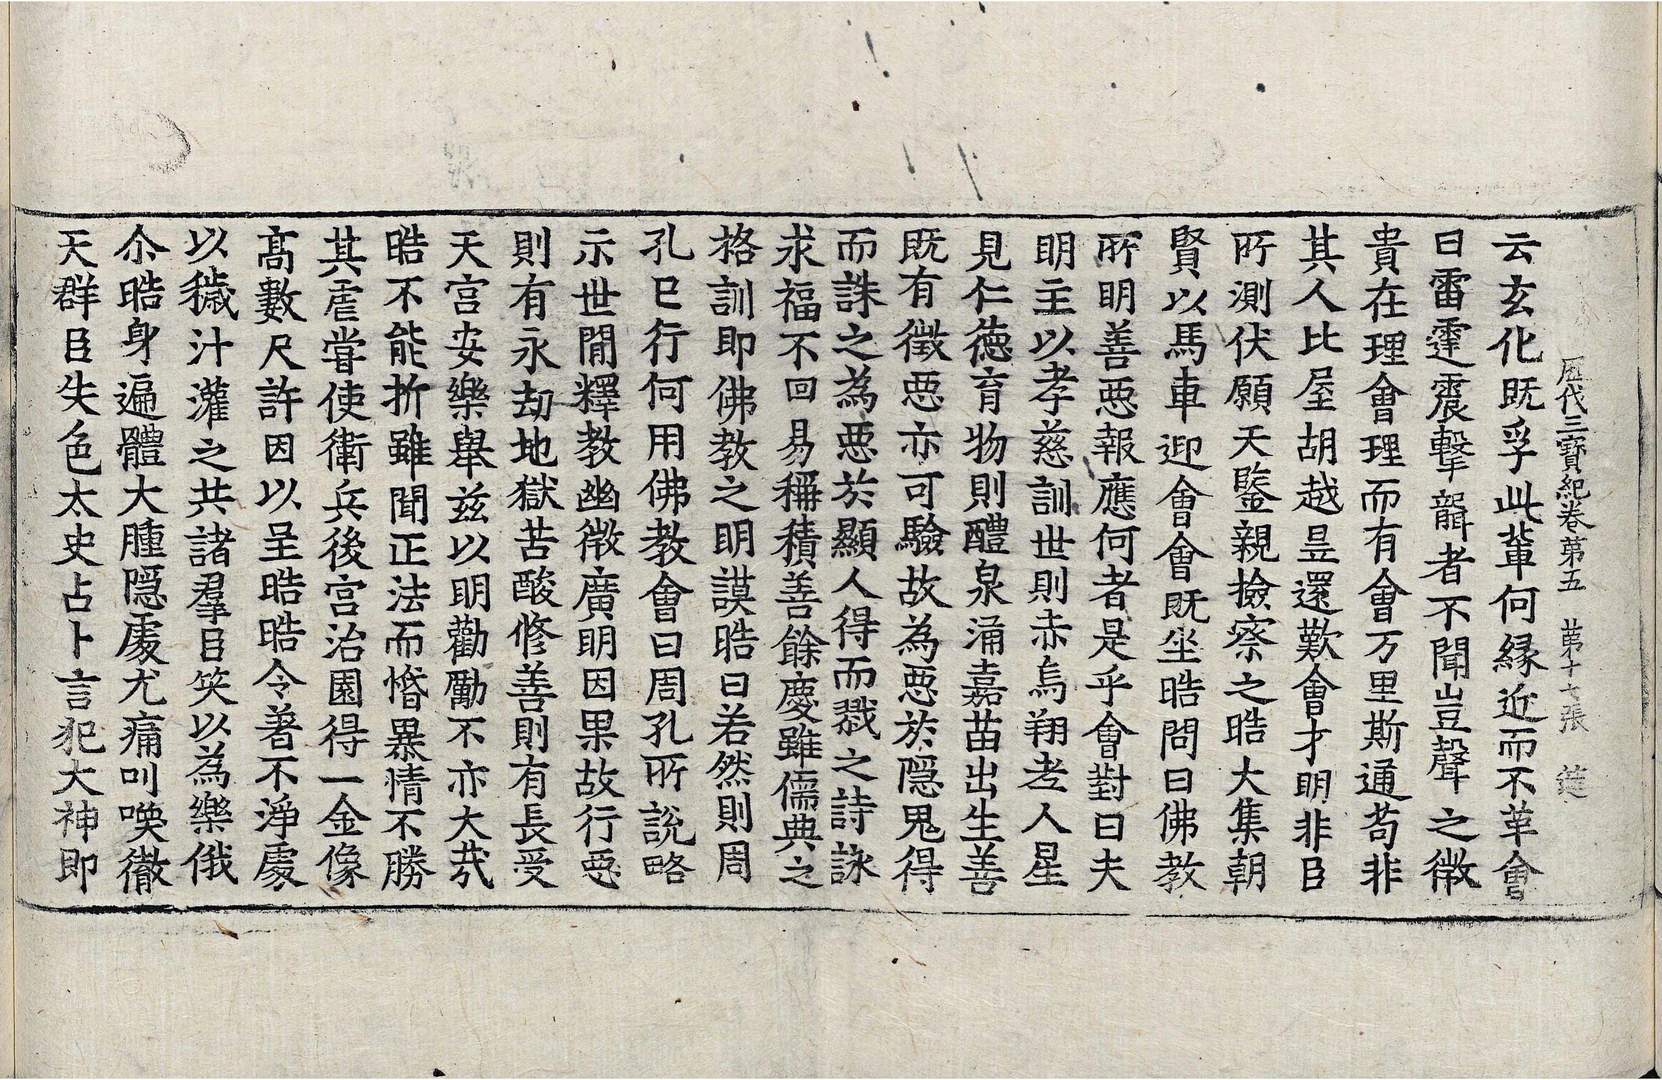 歷代三寶紀卷第五 第十七張 㠉
云玄化旣孚此輩何緣近而不革會
曰雷霆震擊聾者不聞豈聲之徵
貴在理會理而有會万里斯通苟非
其人比屋胡越昱還歎會才明非臣
所測伏願天鑒親撿察之晧大集朝
賢以馬車迎會會旣坐晧問曰佛教
所明善惡報應何者是乎會對曰夫
明主以孝慈訓世則赤烏翔老人星
見仁德育物則醴泉涌嘉苗出生善
旣有徵惡亦可驗故為惡於隱鬼得
而誅之為惡於顯人得而戮之詩詠
求福不回易稱積善餘慶雖儒典之
格訓即佛教之明謨晧曰若然則周
孔已行何用佛教會曰周孔所說略
示世間釋教幽微廣明因果故行惡
則有永劫地獄苦酸修善則有長受
天宮安樂舉玆以明勸勵不亦大哉
晧不能折雖聞正法而惛暴情不勝
其虐嘗使衛兵後宮治園得一金像
高數尺許因以呈晧晧令著不淨處
以穢汁灌之共諸羣臣笑以為樂俄
尒晧身遍體大腫隱處尤痛叫喚徹
天群臣失色太史占卜言犯大神即